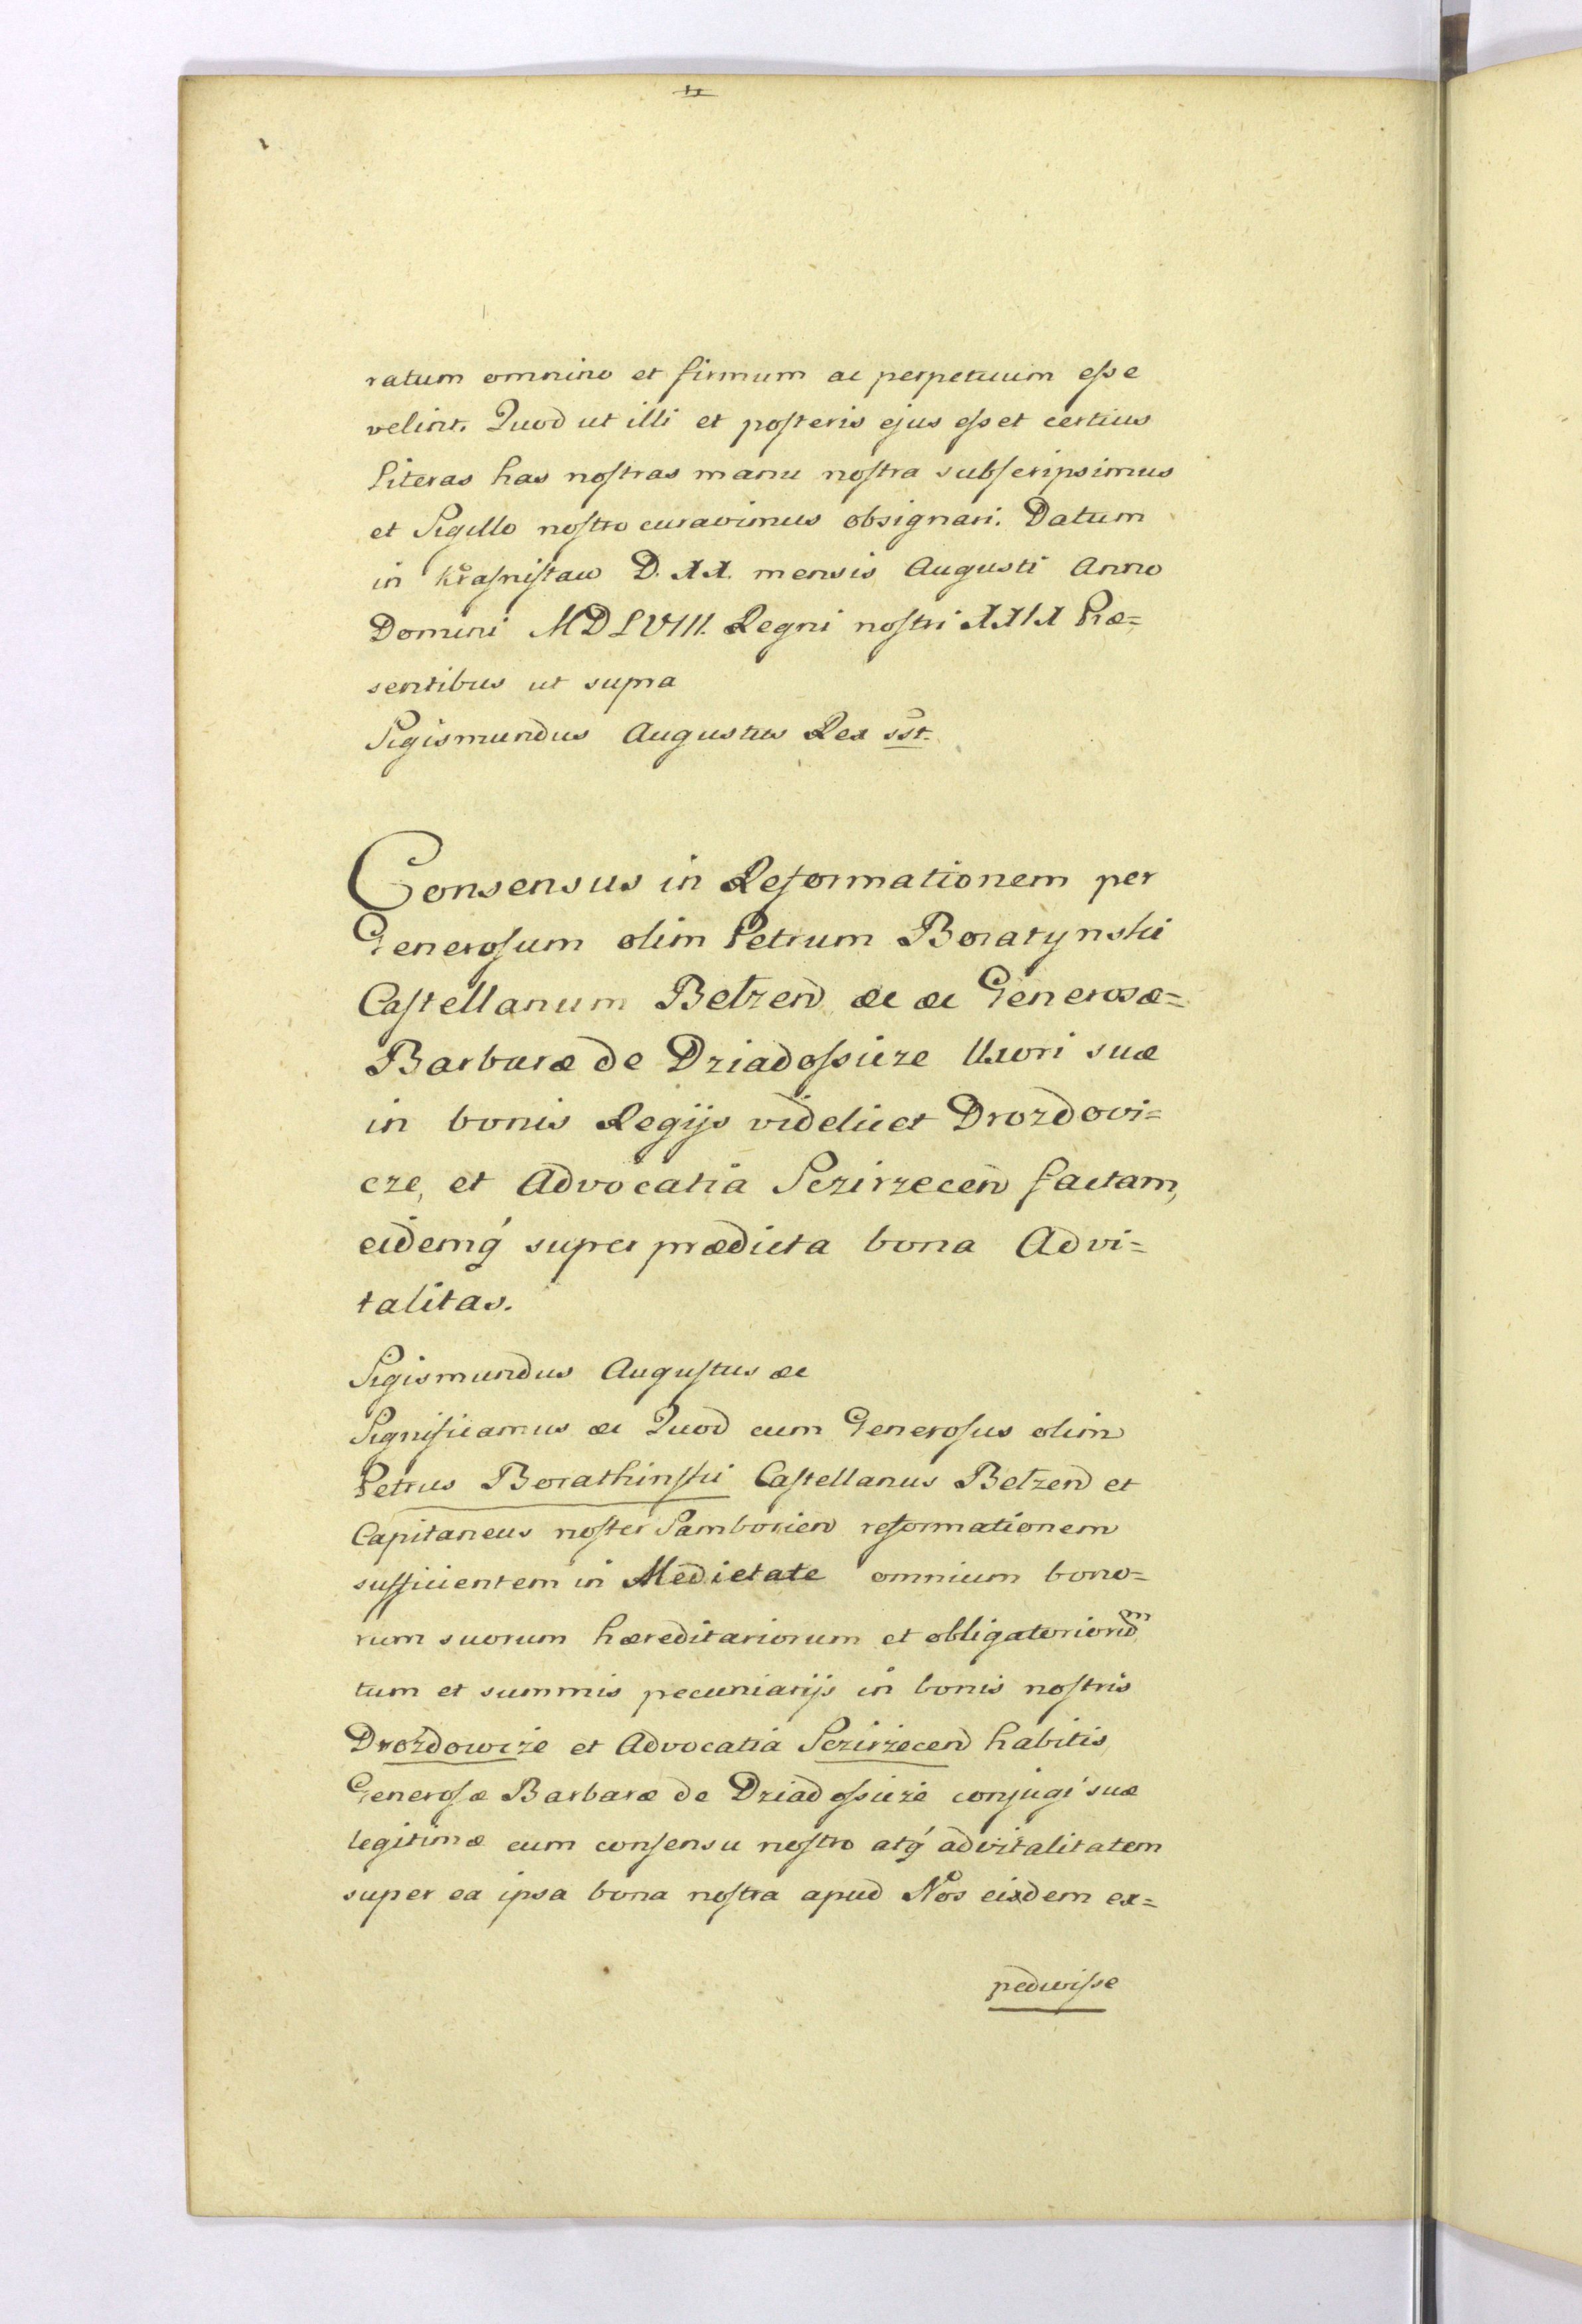 ratum omnino et firmum ac perpetuum esse
velint. Quod ut illi et posteris ejus esset certius
literas has nostras manu nostra subscripsimus
et Sigillo nostro curavimus obsignari. Datum
in Krasnistaw D. XX. mensis Augusti Anno
Domini MDLVIII. Regni nostri XXIX Præ=
sentibus ut supra
Sigismundus Augustus Rex sst.
Consensus in Reformationem per
Generosum olim Petrum Boratynski
Castellanum Belzen &c &c Generosæ=
Barbaræ de Dziadossicze Uxori suæ
in bonis Regijs videlicet Drozdovi=
cze, et Advocatia Sczirzecen factam,
eidemq́ super prædicta bona Advi=
talitas.
Sigismundus Augustus &c
Significamus &c Quod cum Generosus olim
Petrus Borathinski Castellanus Belzen et
Capitaneus noster Samborien reformationem
sufficientem in Medietate omnium bono=
rum suorum hæreditariorum et obligatoriorum
tum et summis pecuniarijs in bonis nostris
Drozdowize et Advocatia Sczirzecen habitis
Generosæ Barbaræ de Dziadossicze conjugi suæ
legitimæ cum consensu nostro atq́ advitalitatem
super ea ipsa bona nostra apud Nos eisdem ex=
pedivisse